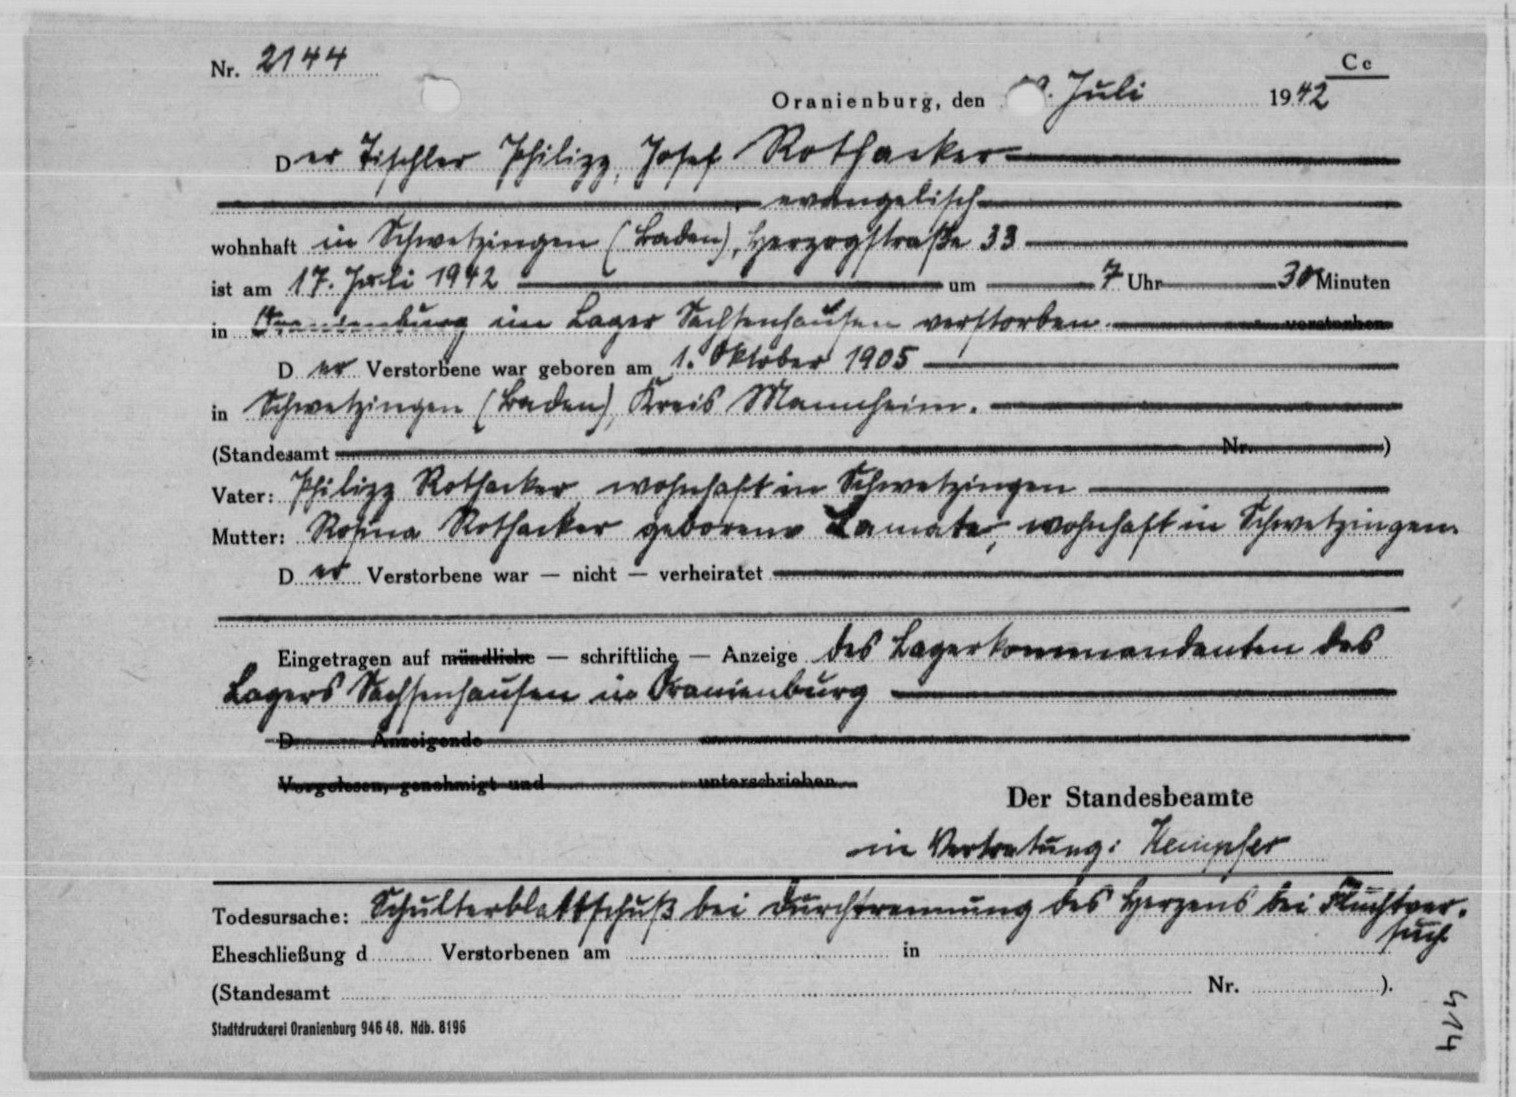 Nr. 2144
Cc
Oranienburg, den Juli 1942
Der Tischler Philipp, Josef Rothacker
evangelisch
wohnhaft in Schwetzingen (Baden), Herzogstraße 33
ist am 17. Juli 1942 um 7 Uhr 30 Minuten
in Oranienburg im Lager Sachsenhausen verstorben. verstorben
Der Verstorbene war geboren am 1. Oktober 1905
in Schwetzingen (Baden) Kreis Mannheim.
(Standesamt Nr. )
Vater: Philipp Rothacker wohnhaft in Schwetzingen
Mutter: Rosina Rothacker geborene wohnhaft in Schwetzingen.
Der Verstorbene war — nicht — verheiratet
Eingetragen auf mündliche — schriftliche — Anzeige des Lagerkommandanten des
Lagers Sachsenhausen in Oranienburg
D Anzeigende
Vorgelesen, genehmigt und unterschrieben
Der Standesbeamte
in Vertretung:
Todesursache: Schulterblattschuß bei Durchtrennung des Herzens bei Fluchtver-
such
Eheschließung d Verstorbenen am in
(Standesamt Nr. ).
Stadtdruckerei Oranienburg 946 48. Ndb. 8196
414